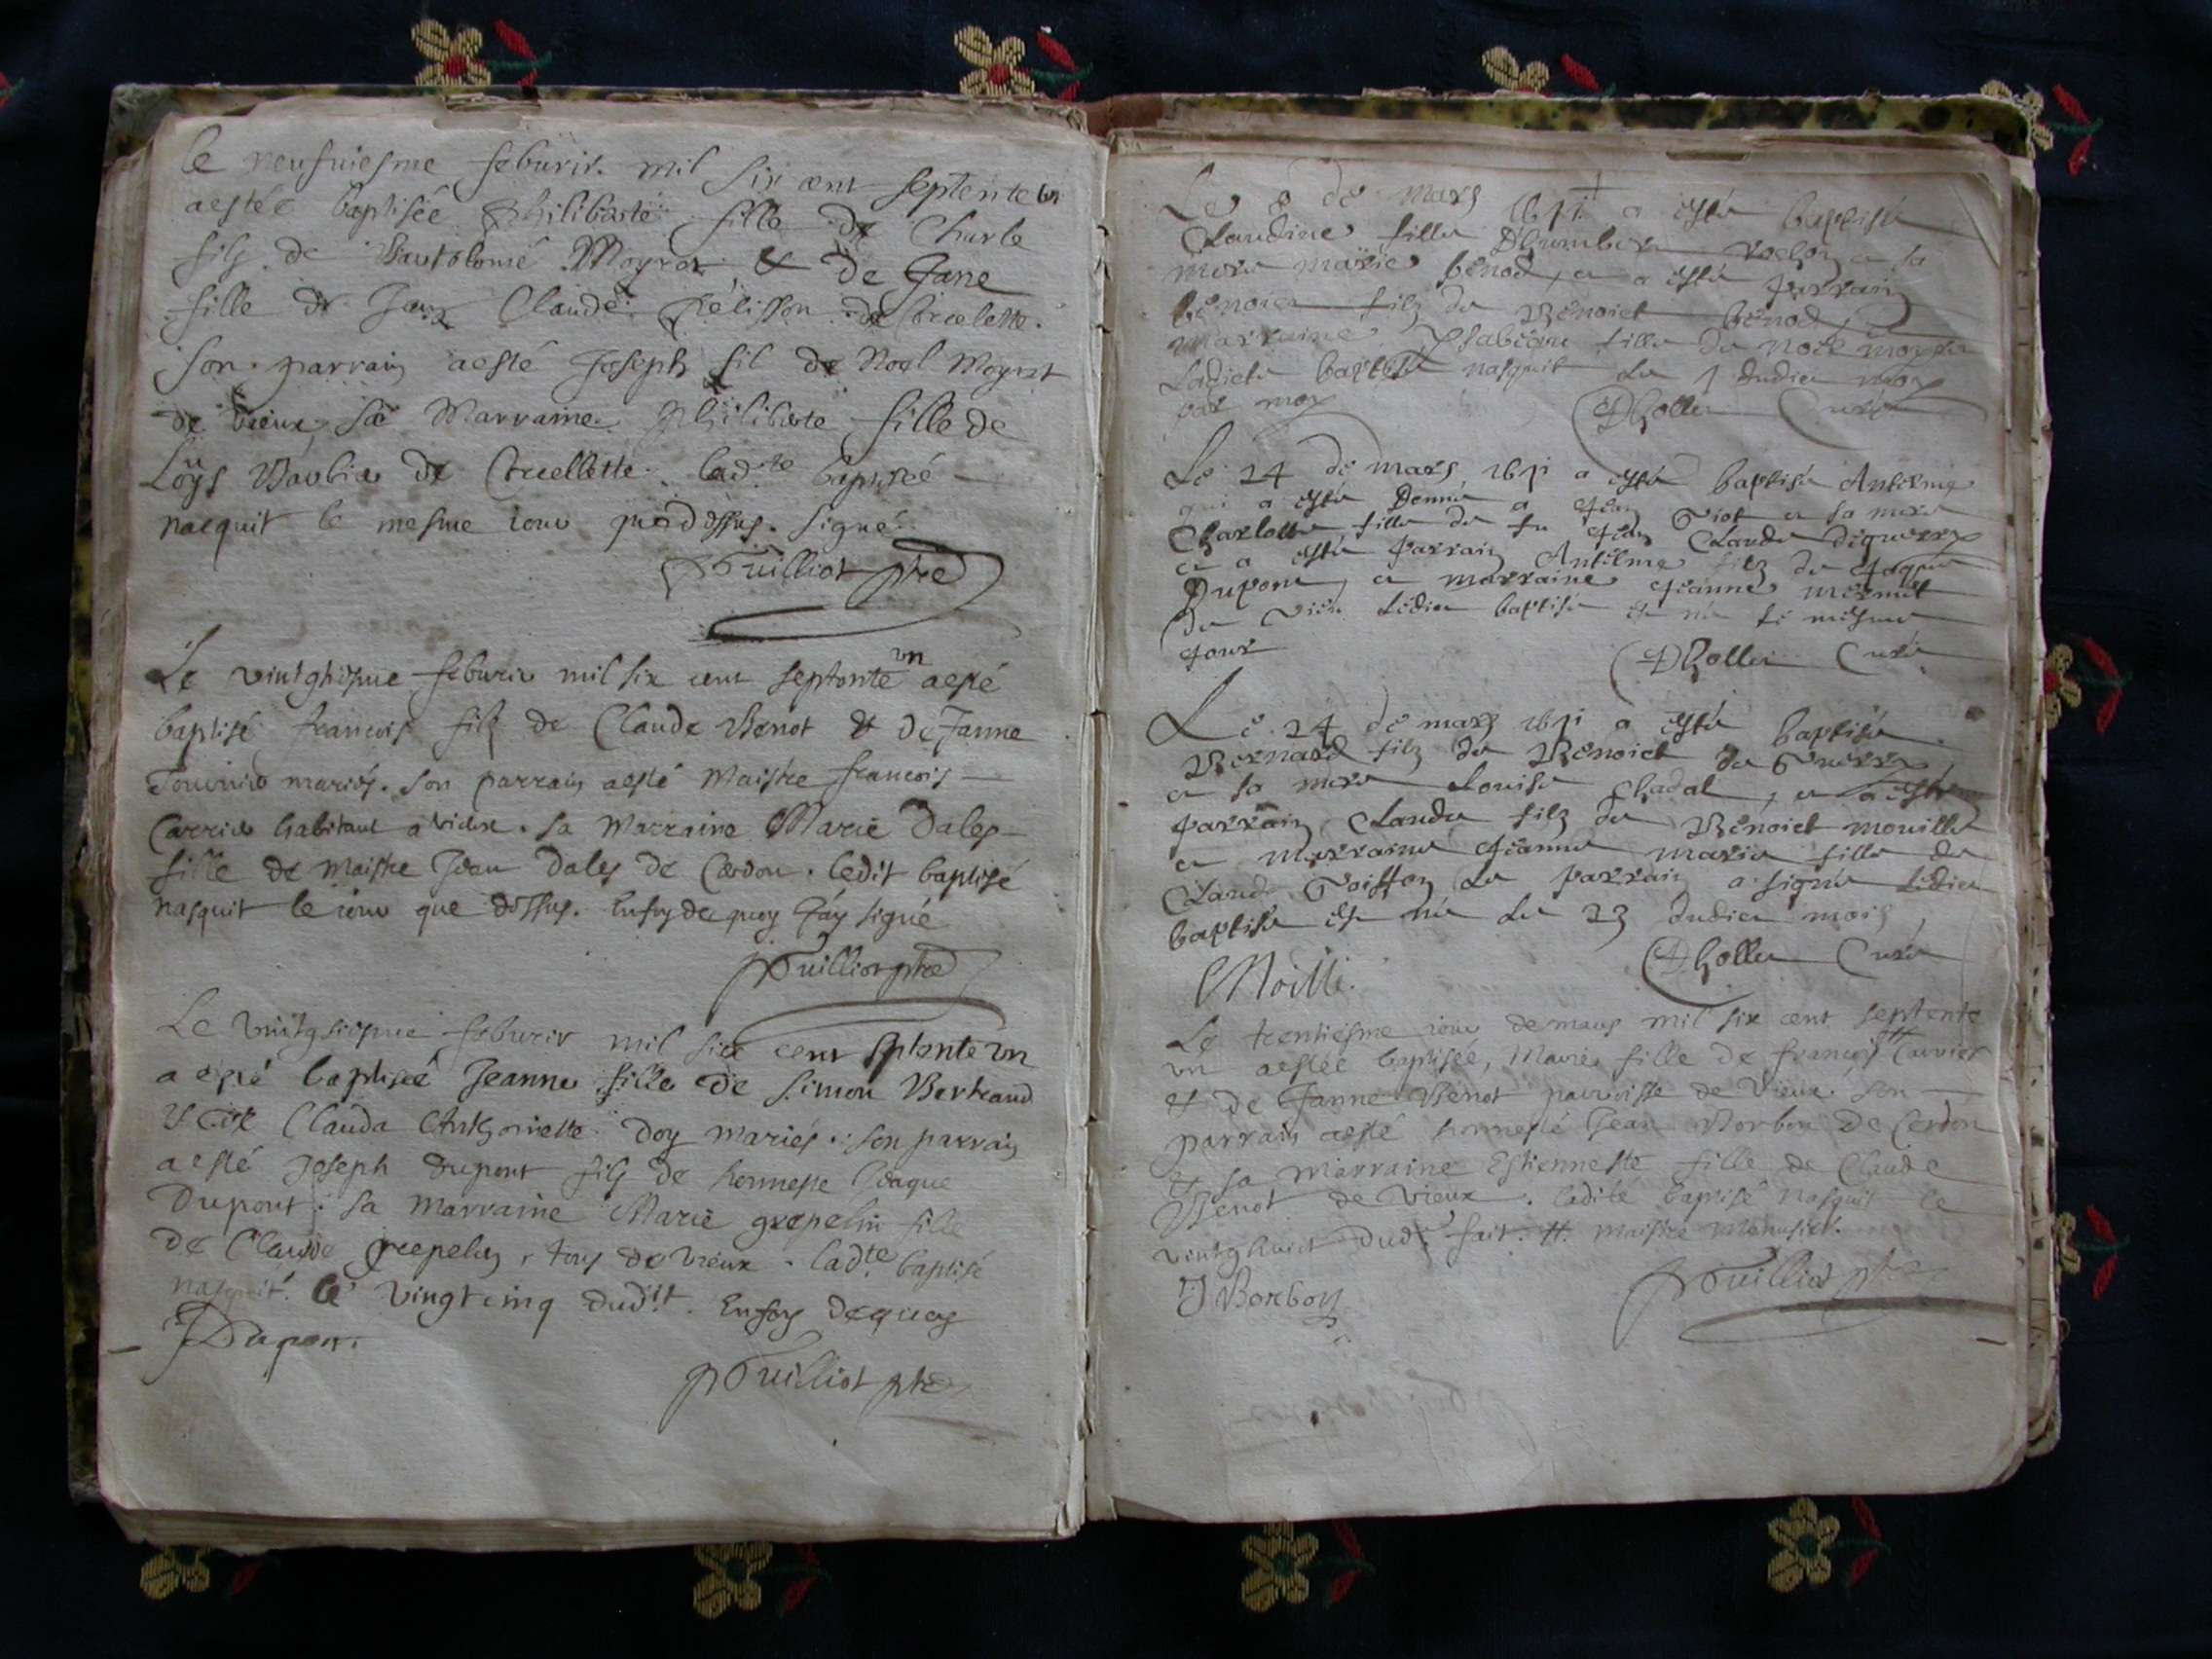 le neufuiesme feburir. mil six cent septente un
aestée baptisée Philiberte fille de Charle
filz de Bartolomé Moyret & de Jane
fille de Jean Claude Pélisson de Corcelette.
son parrain aesté Joseph fil de Noel Moyret
de vieux, sa Marraine Philiberte fille de
Loys Barbier de Corcellette. lad.te baptisée
nacquit le mesme iour que dessus. signé
Tuilliot ptre
Le vintghiesme feburir mil six cent septente vn aesté
baptisé francois filz de Claude Benot & de Janne
mariés. son parrain aesté Maistre francois
Carrier habitant a vieux. sa Marraine Marie Dales
fille de Maistre Jean Dales de Cerdon. ledit baptisé
nasquit le iour que dessus. En foy de quoy J'ay signé
Tuilliot ptre
Le feburir mil six cent septente vn
a esté baptiseé Jeanne fille de Simon Bertrand
& de Clauda Anthoinette Doy mariés. son parrain
aesté Joseph dupont filz de honneste Jaque
Dupont. sa Marraine Marie grepelin fille
de Claude grepelin, tous de vieux. lad.te baptisé
nasquit le vingt cinq dud.it. En foy de quoy
JDupont.
Tuilliot ptre
Le 8 de mars 1671 a esté baptisée
Claudine fille Dhumbert rochon et sa
mere marie benod, et a esté parrain
benoiet filz de Benoiet benod, et
marraine Ysabeau fille de noel moyret
Ladicte baptisée nasquit le 7 dudict moys
par moy Dhollier Curé
Le 24 de mars 1671 a esté baptisé Antelme
qui a esté Donné a Jean Viot et sa mere
Charlotte fille de fu Jean Claude
et a esté parrain Antelme filz de Jaque
Dupont, et marraine Jeanne mermet
de vieu Ledict baptisé est né le mesme
Jour Dhollier Curé
Le 24 de mars 1671 a esté baptisé
Bernard filz de Benoiet de
et sa mere Louise Chadal, et a esté
parrain Claude filz de Benoiet mouille
et marraine Jeanne marie fille de
Claude Poisson Le parrain a signé Ledict
baptisé est né Le 23 dudict mois
Dhollier Curé
CMoille.
Le trentiesme iour de mars mil six cent septente
vn aestée baptisée, Marie fille de francois # Carrier
& de Janne Benot parroisse de vieux. son
parrain aesté honnesté Jean Borbon de Cerdon
& sa marraine Estiennette fille de Claude
Benot de vieux. ladite baptisé nasquit le
vintghuict dud.t fait. #. maistre menusier.
J Borbon
Tuilliot ptre